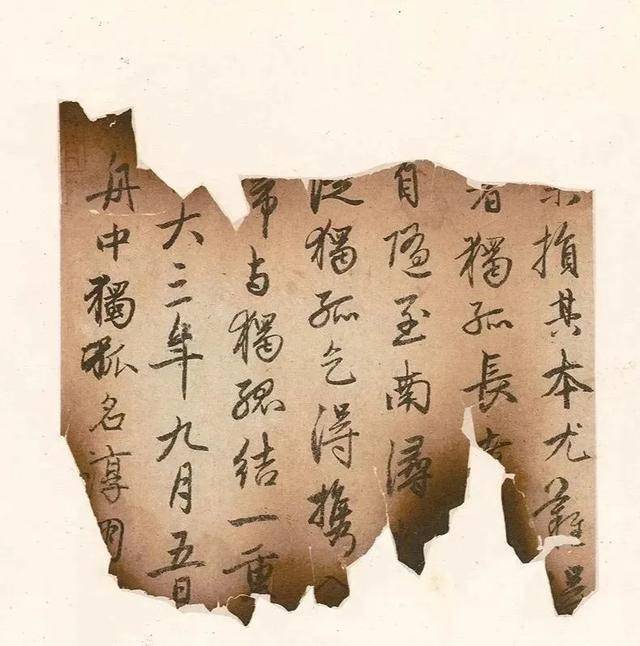 損其本尤難
者獨孤長
自隨至南潯
從獨孤乞得攜入
与獨孤結一重
大三年九月五日
舟中獨孤名淳朋